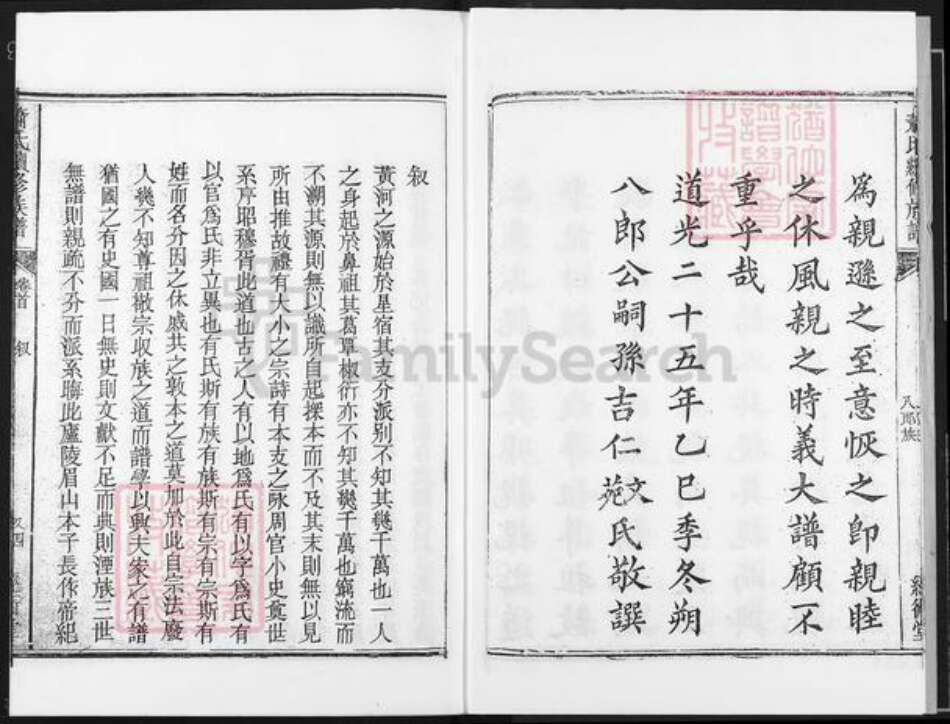 為親遜之至意恢之即親睦
之休風親之時義大譜顧不
重乎哉
道光二十五年乙巳季冬朔
八郎公嗣孫吉仁文苑氏敬譔
八郎族
叙
黃河之源始於星宿其支分派別不知其幾千萬也一人
之身起於鼻祖其葛覃椒衍亦不知其幾千萬也窮流而
不溯其源則無以識所自起探本而不及其末則無以見
所由推故禮有大小之宗詩有本支之詠周官小史奠世
系序昭穆胥此道也古之人有以地為氏有以字為氏有
以官為氏非立異也有氏斯有族有族斯有宗有宗斯有
姓而名分因之休戚共之敦本之道莫加於此自宗法廢
人幾不知尊祖敬宗收族之道而譜學以興夫家之有譜
猶國之有史國一日無史則文獻不足而典則湮族三世
無譜則親疏不分而派系晦此廬陵眉山本子長作帝紀
蕭氏續修族譜
卷首
叙
FamilySearch